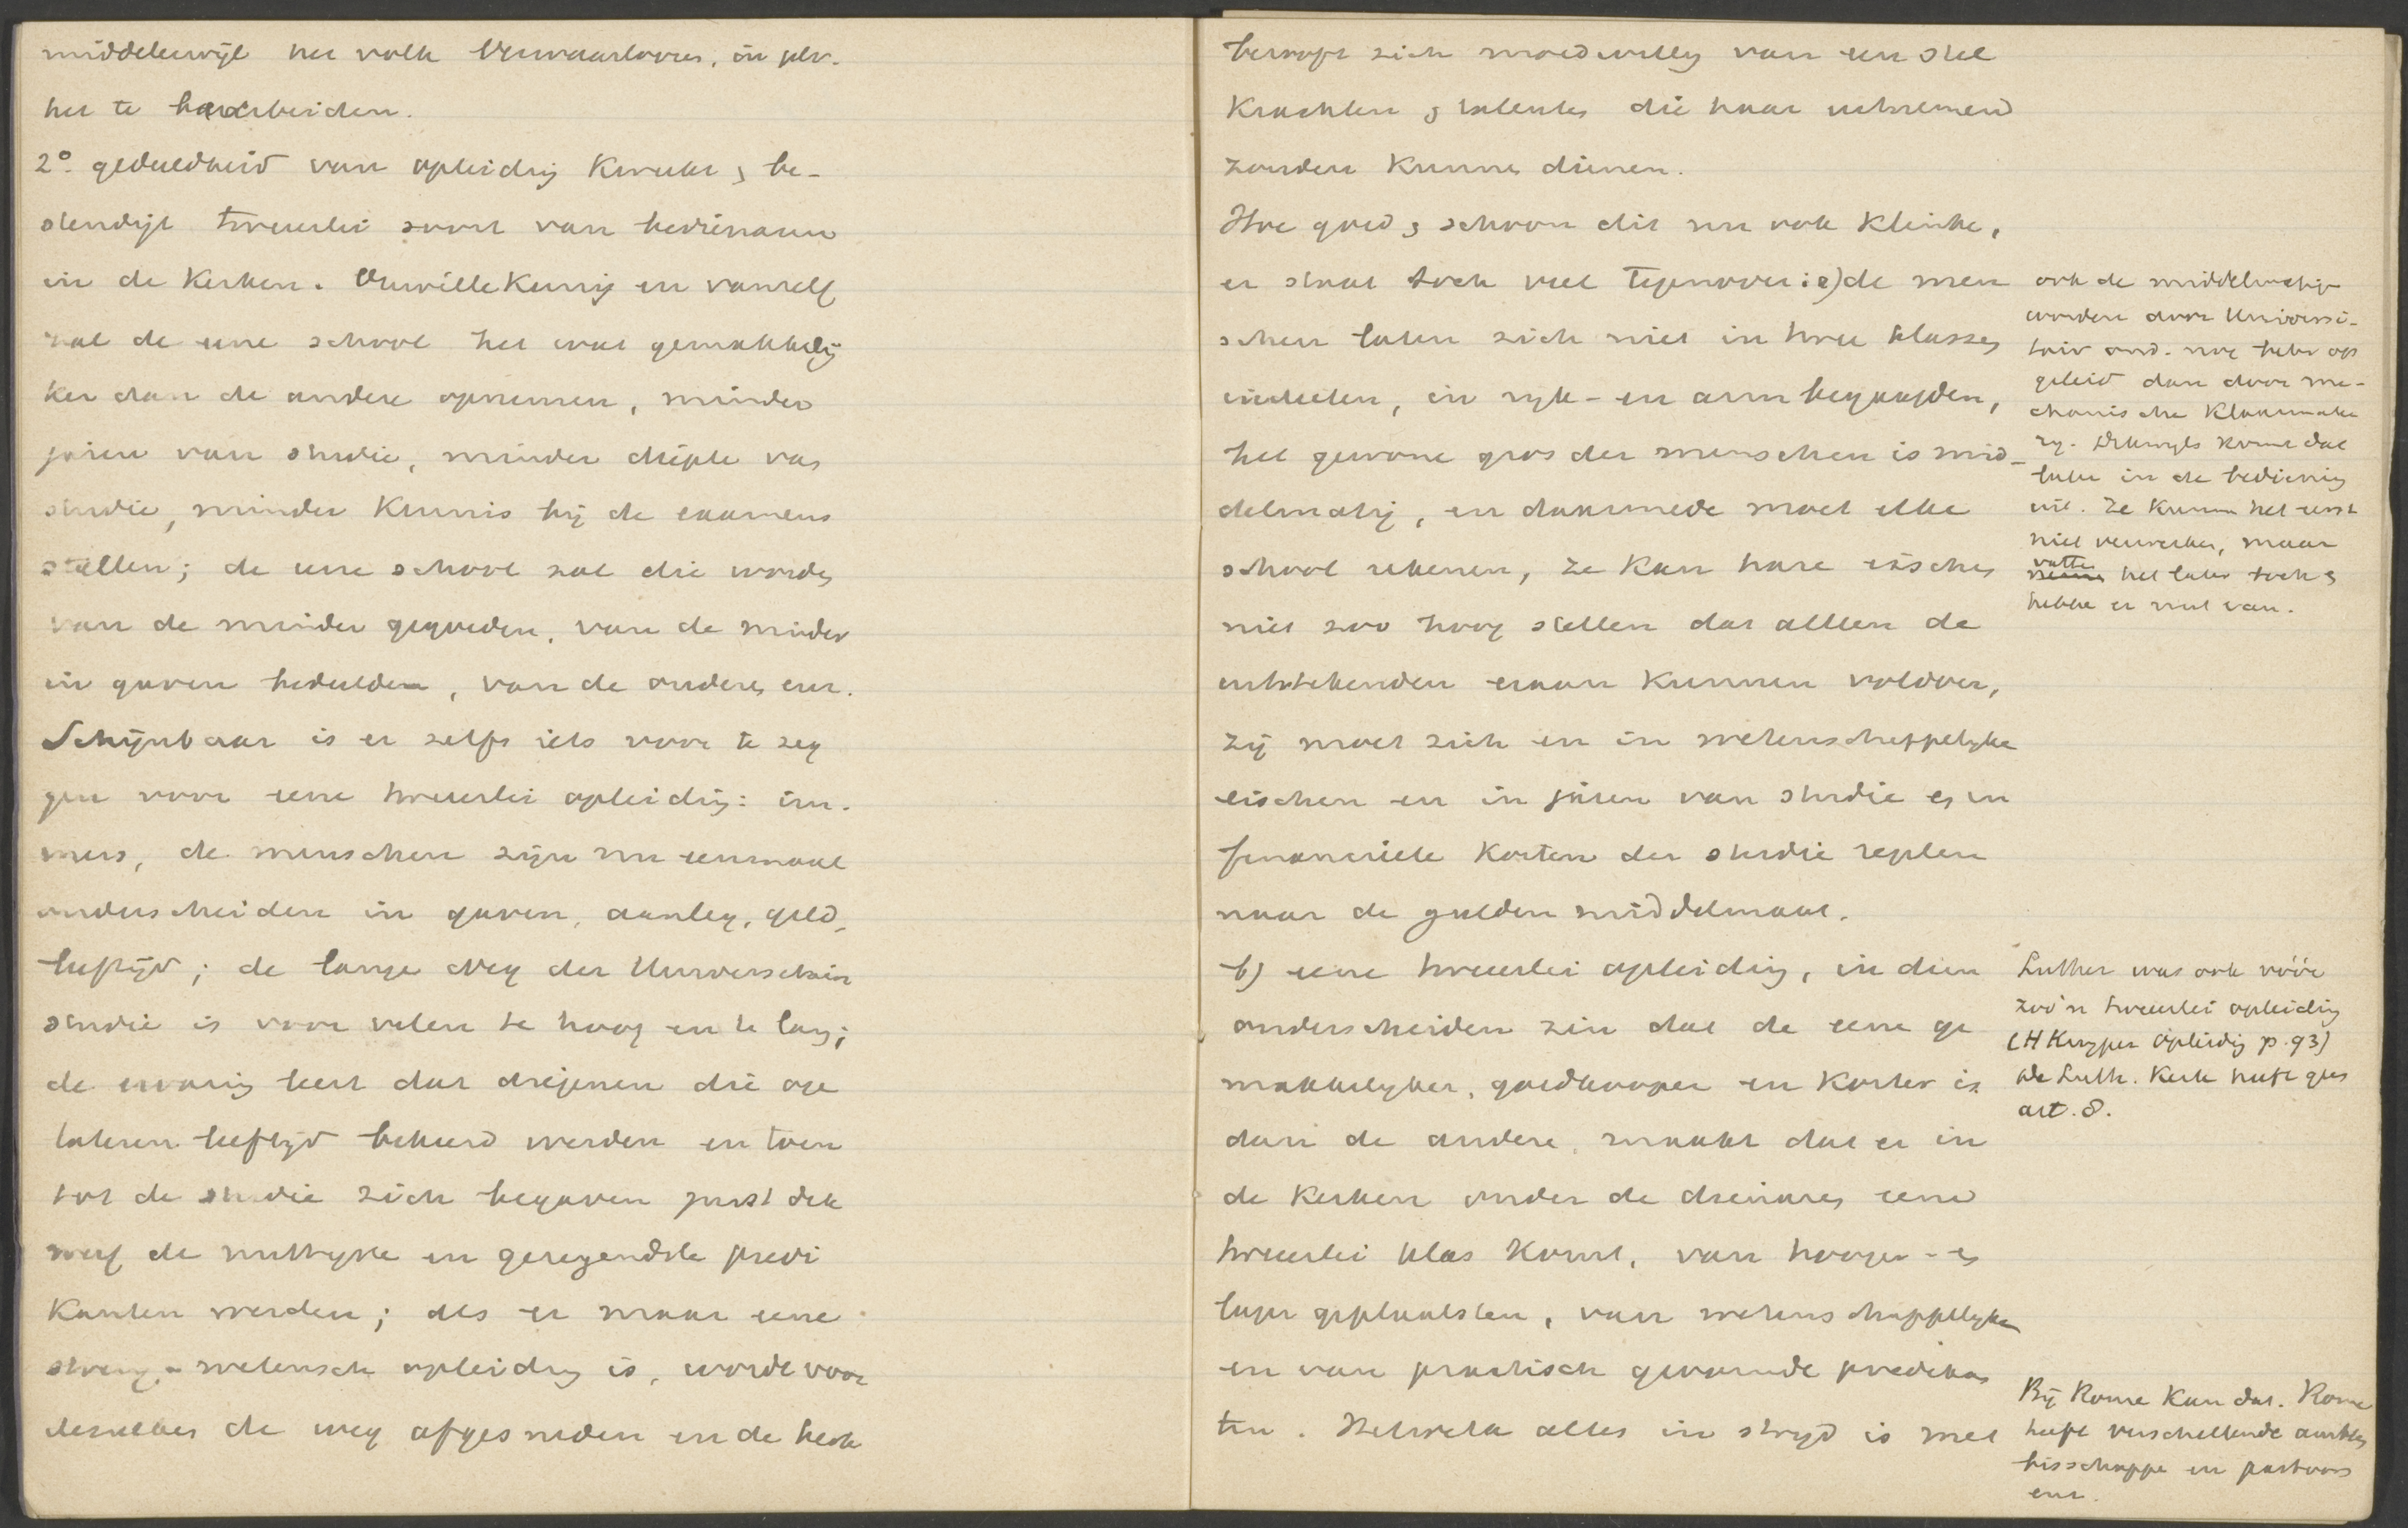 middelerwijl het volk verwaarloozen, in plv.
het te bearbeiden.
2º. gedeeldheid van opleiding kweekt & be-
stendigt tweeërlei soort van bedienaren
in de Kerken. Onwillekeurig en vanzelf
zal de eene school het wat gemakkelij
ker dan de andere opnemen, minder
jaren van studie, minder diepte van
studie, minder kennis bij de examens
stellen; de eene school zal die worden
van de minder gegoeden, van de minder
in gaven bedeelden, van de andere, enz.
Schijnbaar is er zelfs iets voor te zeg
gen voor eene tweeërlei opleiding: im-
mers, de menschen zijn nu eenmaal
onderscheiden in gaven, aanleg, geld,
leeftijd; de lange weg der Universitair
studie is voor velen te hoog en te lang;
de ervaring leert dat diegenen die op
lateren leeftijd bekeerd werden en toen
tot de studie zich begaven juist dik
werf de nuttigste en gezegendste predi
kanten werden; als er maar eene
streng-wetensch opleiding is, wordt voor
dezulken de weg afgesneden en de kerk
berooft zich moedwillig van een stel
Krachten & talenten die haar uitnemend
zouden kunnen dienen.
Hoe goed & schoon dit nu ook klinke,
er staat toch veel tegenover: a) de men
schen laten zich niet in twee klassen
indeelen, in rijk- en arm begaafden,
het gewone gros der menschen is mid-
delmatig, en daarmede moet elke
school rekenen, ze kan hare eischen
niet zoo hoog stellen dat alleen de
uitstekenden eraan kunnen voldoen,
zij moet zich en in wetenschappelijke
eischen en in jaren van studie en in
financieele kosten der studie regelen
naar de gulden middelmaat.
b) eene tweeërlei opleiding, in dien
onderscheiden zin dat de eene ge
makkelijker, goedkooper en korter is
dan de andere, maakt dat er in
de Kerken onder de dienaren eene
tweeërlei klas komt, van hooger- en
lager geplaatsten, van wetenschappelijken
en van practisch gevormde predikan
ten. Hetwelk alles in strijd is met
ook de middelmatigen
worden door Universi-
tair ond. nog beter op
geleid dan door me-
chanische klaarmake
rij. Dikwijls komt dat
later in de bediening
uit. Ze kunnen het eerst
niet verwerken, maar
vatten het later toch &
hebben er nut van.
Luther was ook vóór
zoo'n tweeërlei opleiding
(H Kuyper Opleiding p. 93)
De Luth. Kerk heeft geen
art. 8.
Bij Rome kan dat. Rome
heeft verschillende ambten
bisschoppen en pastoors
enz.